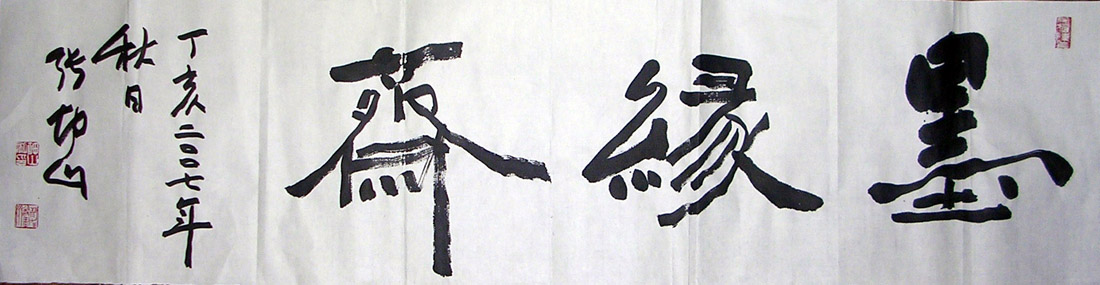 墨緣齋
丁亥二〇〇七年
秋日
张坤山